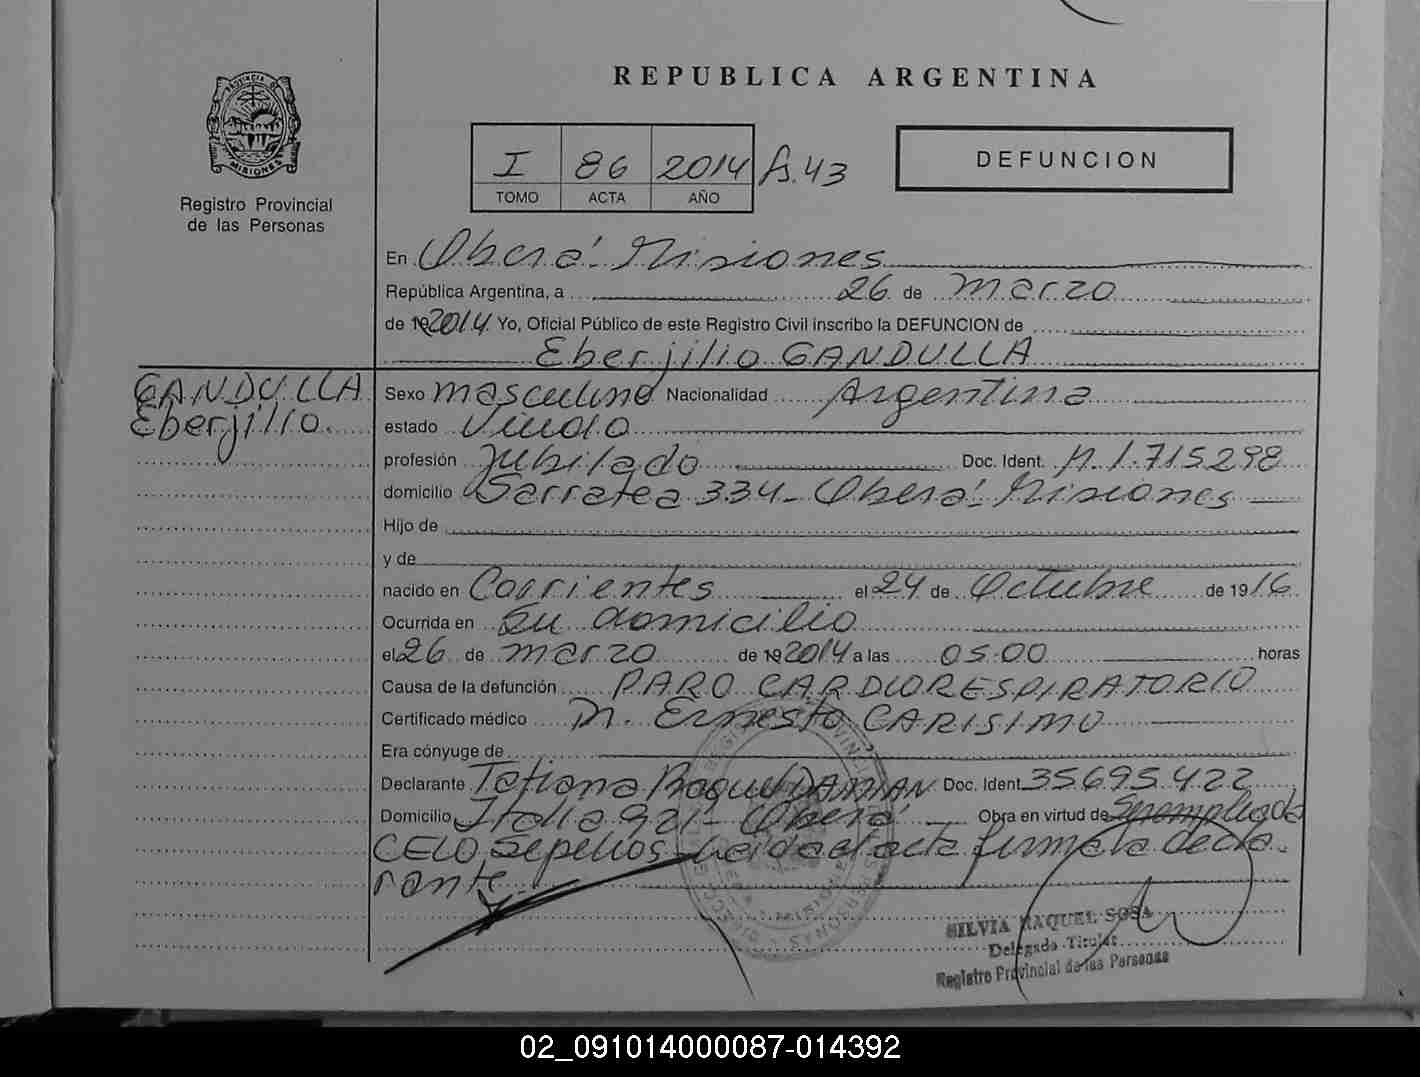 REPUBLICA ARGENTINA
PROVINCIA D MISIONES
Registro Provincial
de las Personas
I 86 2014 fs. 43
TOMO ACTA AÑO
DEFUNCION
En Oberá Misiones
República Argentina, a 26 de marzo
de 192014 Yo, Oficial Público de este Registro Civil inscribo la DEFUNCION de
Eberjilio GANDULLA
GANDULLA
Eberjilio.
Sexo masculino Nacionalidad Argentina
estado Viudo
profesión Jubilado Doc. Ident. M. 1.715298
domicilio Sarratea 334 - Oberá Misiones
Hijo de
y de
nacido en Corrientes el 24 de Octubre de 1916
Ocurrida en su domicilio
el 26 de marzo de 192014 a las 05.00 horas
Causa de la defunción PARO CARDIORESPIRATORIO
Certificado médico Dr. Ernesto CARISIMO
Era cónyuge de
Declarante Tatiana Raquel DAMIAN Doc. Ident. 35695422
Domicilio Italia 921 - Oberá Obra en virtud de ser empleada
CELO Sepelios Leida el acta firma la decla
rante
SILVIA RAQUEL SOSA
Delegada Titular
Registro Provincial de las Personas
02_091014000087-014392